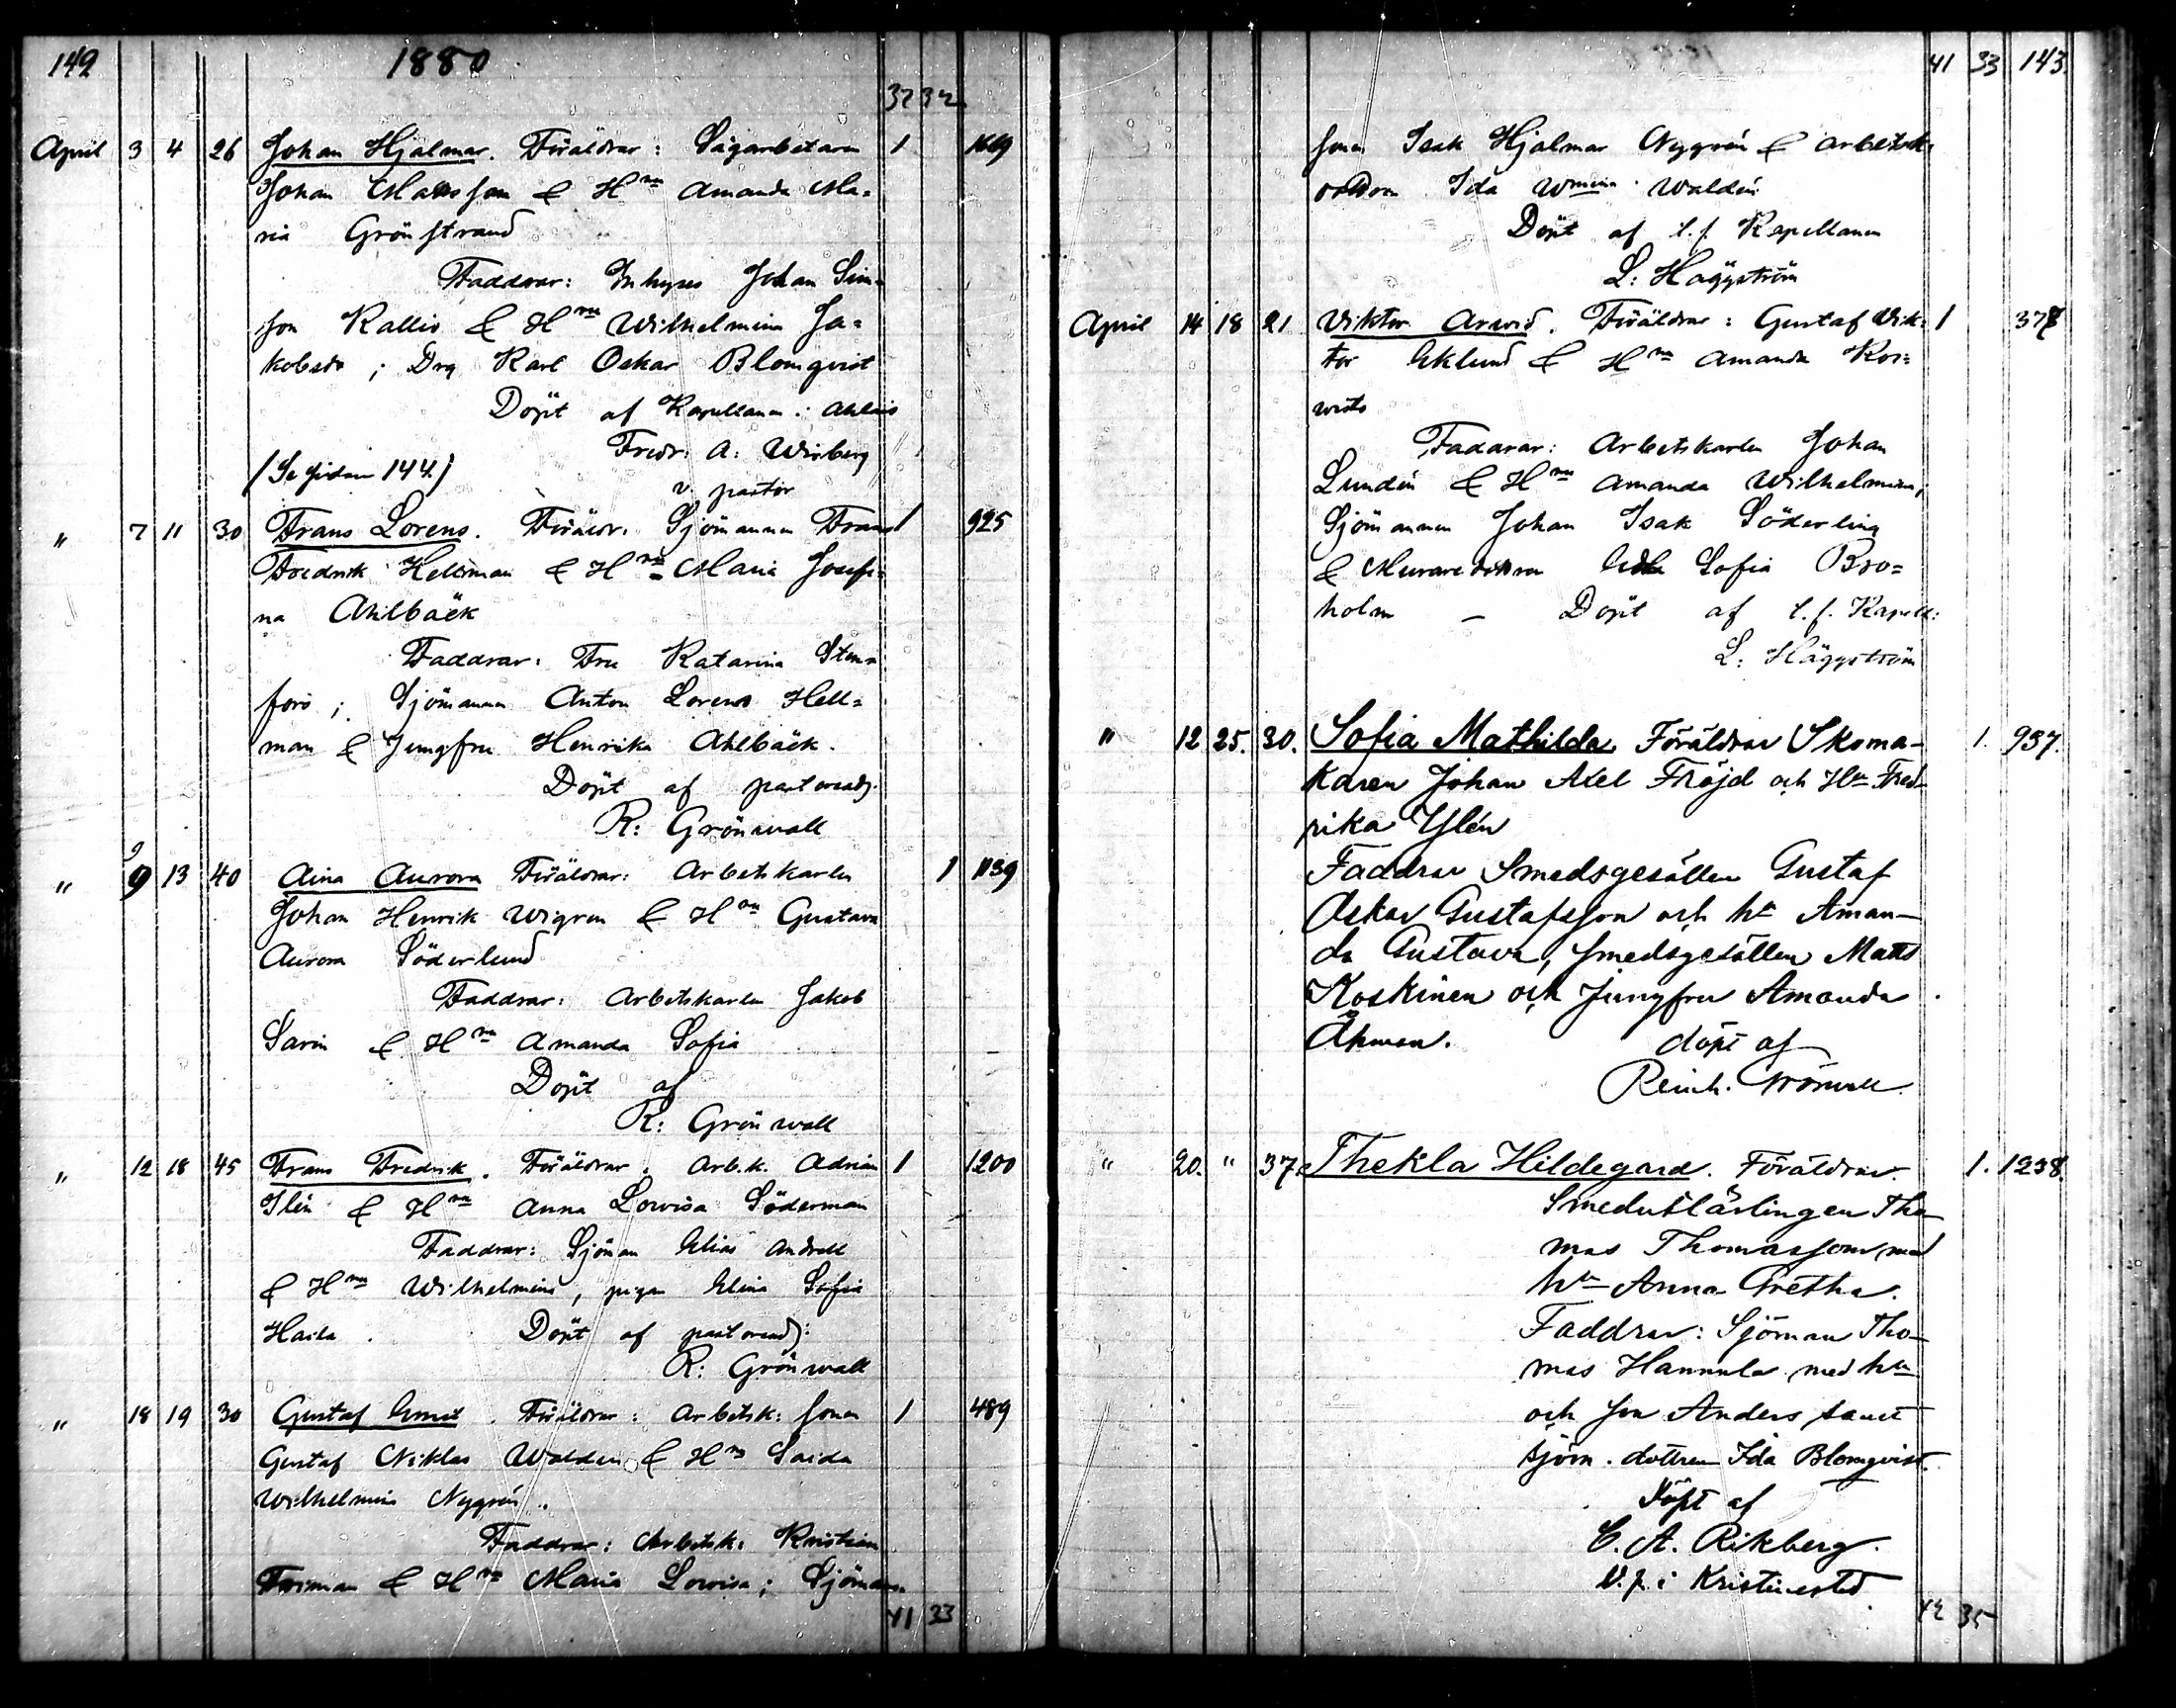 142 1880
37 32
April 3 4 26 Johan Hjalmar. Föräldrar: Sågarbetaren 1 1669
Johan Matsson & H:n Amanda Ma=
ria Grönstrand
Faddrar: Inhyses Johan Sim=
son Kallio & H:n Wilhelmina Ja=
kobsdr; Drg Karl Oskar Blomqvist
Döpt af Kapellanen i Ahlais
Fredr: A: Winberg
(Se sidan 144.) v. pastor
" 7 11 30 Frans Lorens. Föräldr. Sjömannen Frans 1 925
Fredrik Hellman & H:n Maria Josefi=
na Ahlbäck
Faddrar: Fru Katarina Sten=
fors; Sjömannen Anton Lorens Hell=
man & Jungfru Henrika Ahlbäck.
Döpt af pastorsadj.
R: Grönwall
" 9 13 40 Aina Aurora Föräldrar: Arbetskarlen 1 1139
Johan Henrik Wigren & H:n Gustava
Aurora Söderlund
Faddrar: Arbetskarlen Jakob
Sarin & H:n Amanda Sofia
Döpt af
R: Grönwall
" 12 18 45 Frans Fredrik. Föräldrar. Arb.k. Adrian 1 1200
Ilén & H:n Anna Lovisa Söderman
Faddrar: Sjöman Elias Andrell
& H:n Wilhelmina, pigan Elina Sofia
Haila. Döpt af pastorsadj:
R: Grönwall
" 18 19 30 Gustaf Ernst. Föräldrar: Arbetsk: sonen 1 489
Gustaf Niklas Walden & H:n Saida
Wilhelmina Nygrén.
Faddrar: Arbetsk: Kristian
Friman & H:n Maria Lovisa; Sjöman=
41 33
41 33 143.
sonen Isak Hjalmar Nygrén & Arbetsk.
dottren Ida Wmina Waldén
Döpt af t.f. Kapellanen
L: Häggström
April 14 18 21 Viktor Arvid. Föräldrar: Gustaf Vik= 1 378
tor Eklund & H:n Amanda Kor=
Faddrar: Arbetskarlen Johan
Lundén & H:n Amanda Wilhelmina,
Sjömannen Johan Isak Söderling
& Murare dottren Sofia Bro=
holm — Döpt af t.f. Kapell:
L: Häggström
" 12 25. 30. Sofia Mathilda, Föräldrar Skoma- 1. 937.
karen Johan Axel Fröjd och H:u Fred-
rika Ylén
Faddrar Smedsgesällen Gustaf
Oskar Gustafsson och h:u Aman-
da Gustava, smedsgesällen Matts
Koskinen och Jungfru Amanda
Åhman. döpt af
Reinh. Grönwall.
" 20. " 37. Thekla Hildegard. Föräldrar. 1. 1238.
Smedslärlingen Tho-
mas Thomasson med
h:u Anna Gretha.
Faddrar: Sjöman Tho-
mas Hannula med h:u
och son Anders samt
sjöm. dottren Ida Blomqvist.
Döpt af
C. A. Rikberg.
V.p. i Kristinestd.
42 35